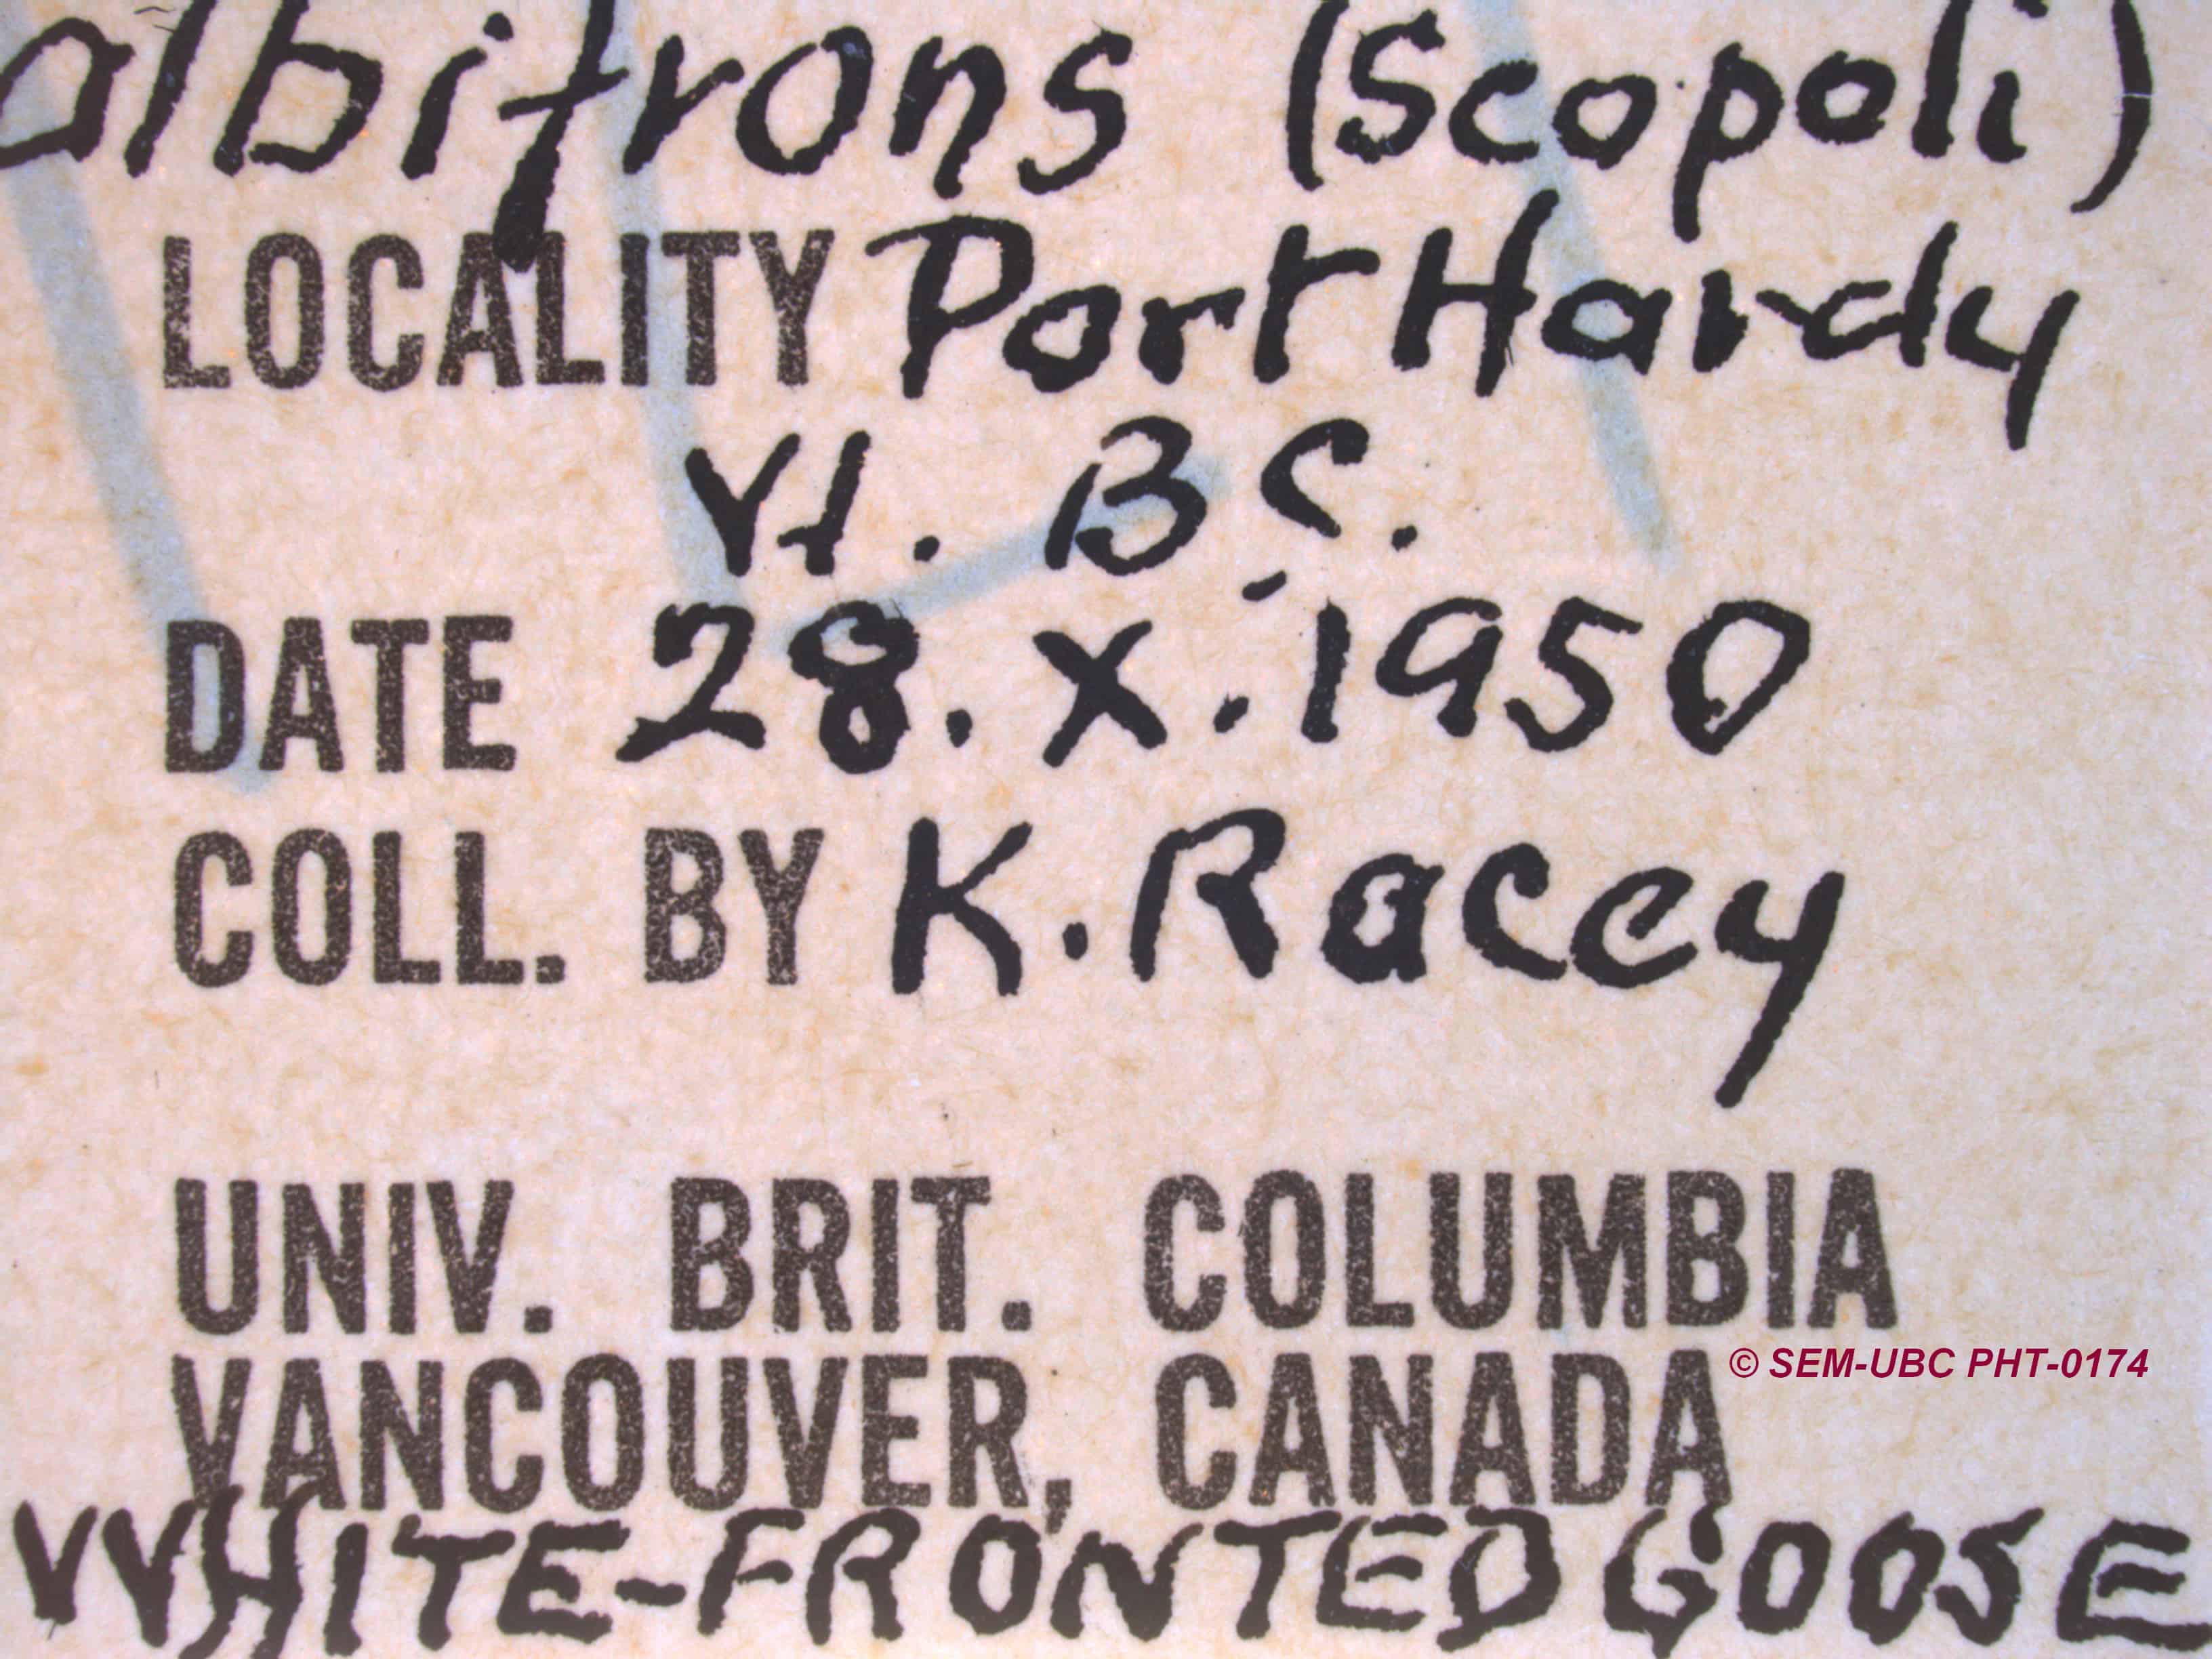 albifrons (Scopoli)
LOCALITY Port Hardy
VI. B.C.
DATE 28.X.1950
COLL. BY K. Racey
UNIV. BRIT. COLUMBIA
© SEM-UBC PHT-0174
VANCOUVER, CANADA
WHITE-FRONTED GOOSE